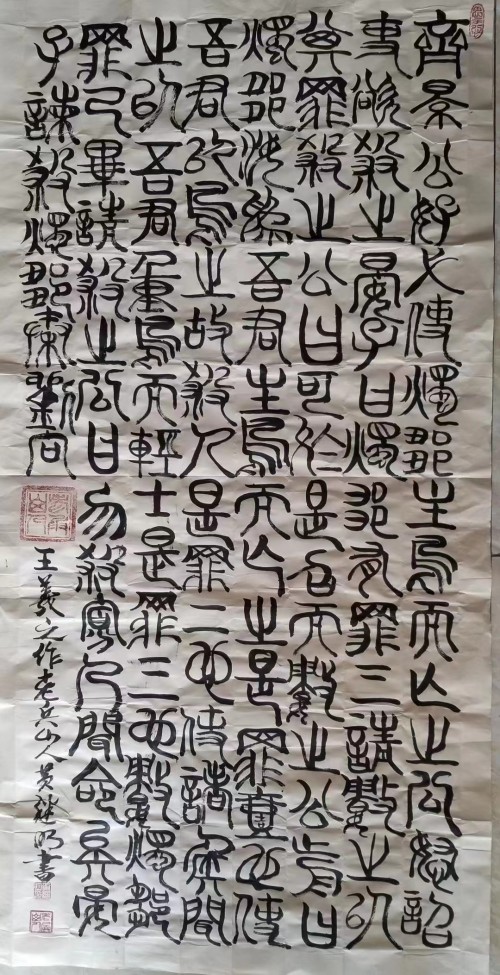 齊景公好弋使燭鄒主鳥而亡之公怒詔
吏欲殺之晏子曰燭鄒有罪三請數之以
其罪殺之公曰可於是召而數之公前曰
燭鄒汝為吾君主鳥而亡之是罪壹也使
吾君以鳥之故殺人是罪二也使諸侯聞
之以吾君重鳥而輕士是罪三也數燭鄒
罪已畢請殺之公曰勿殺寡人聞命矣晏
子諫殺燭鄒 向
王羲之作老兵山人黄继明書